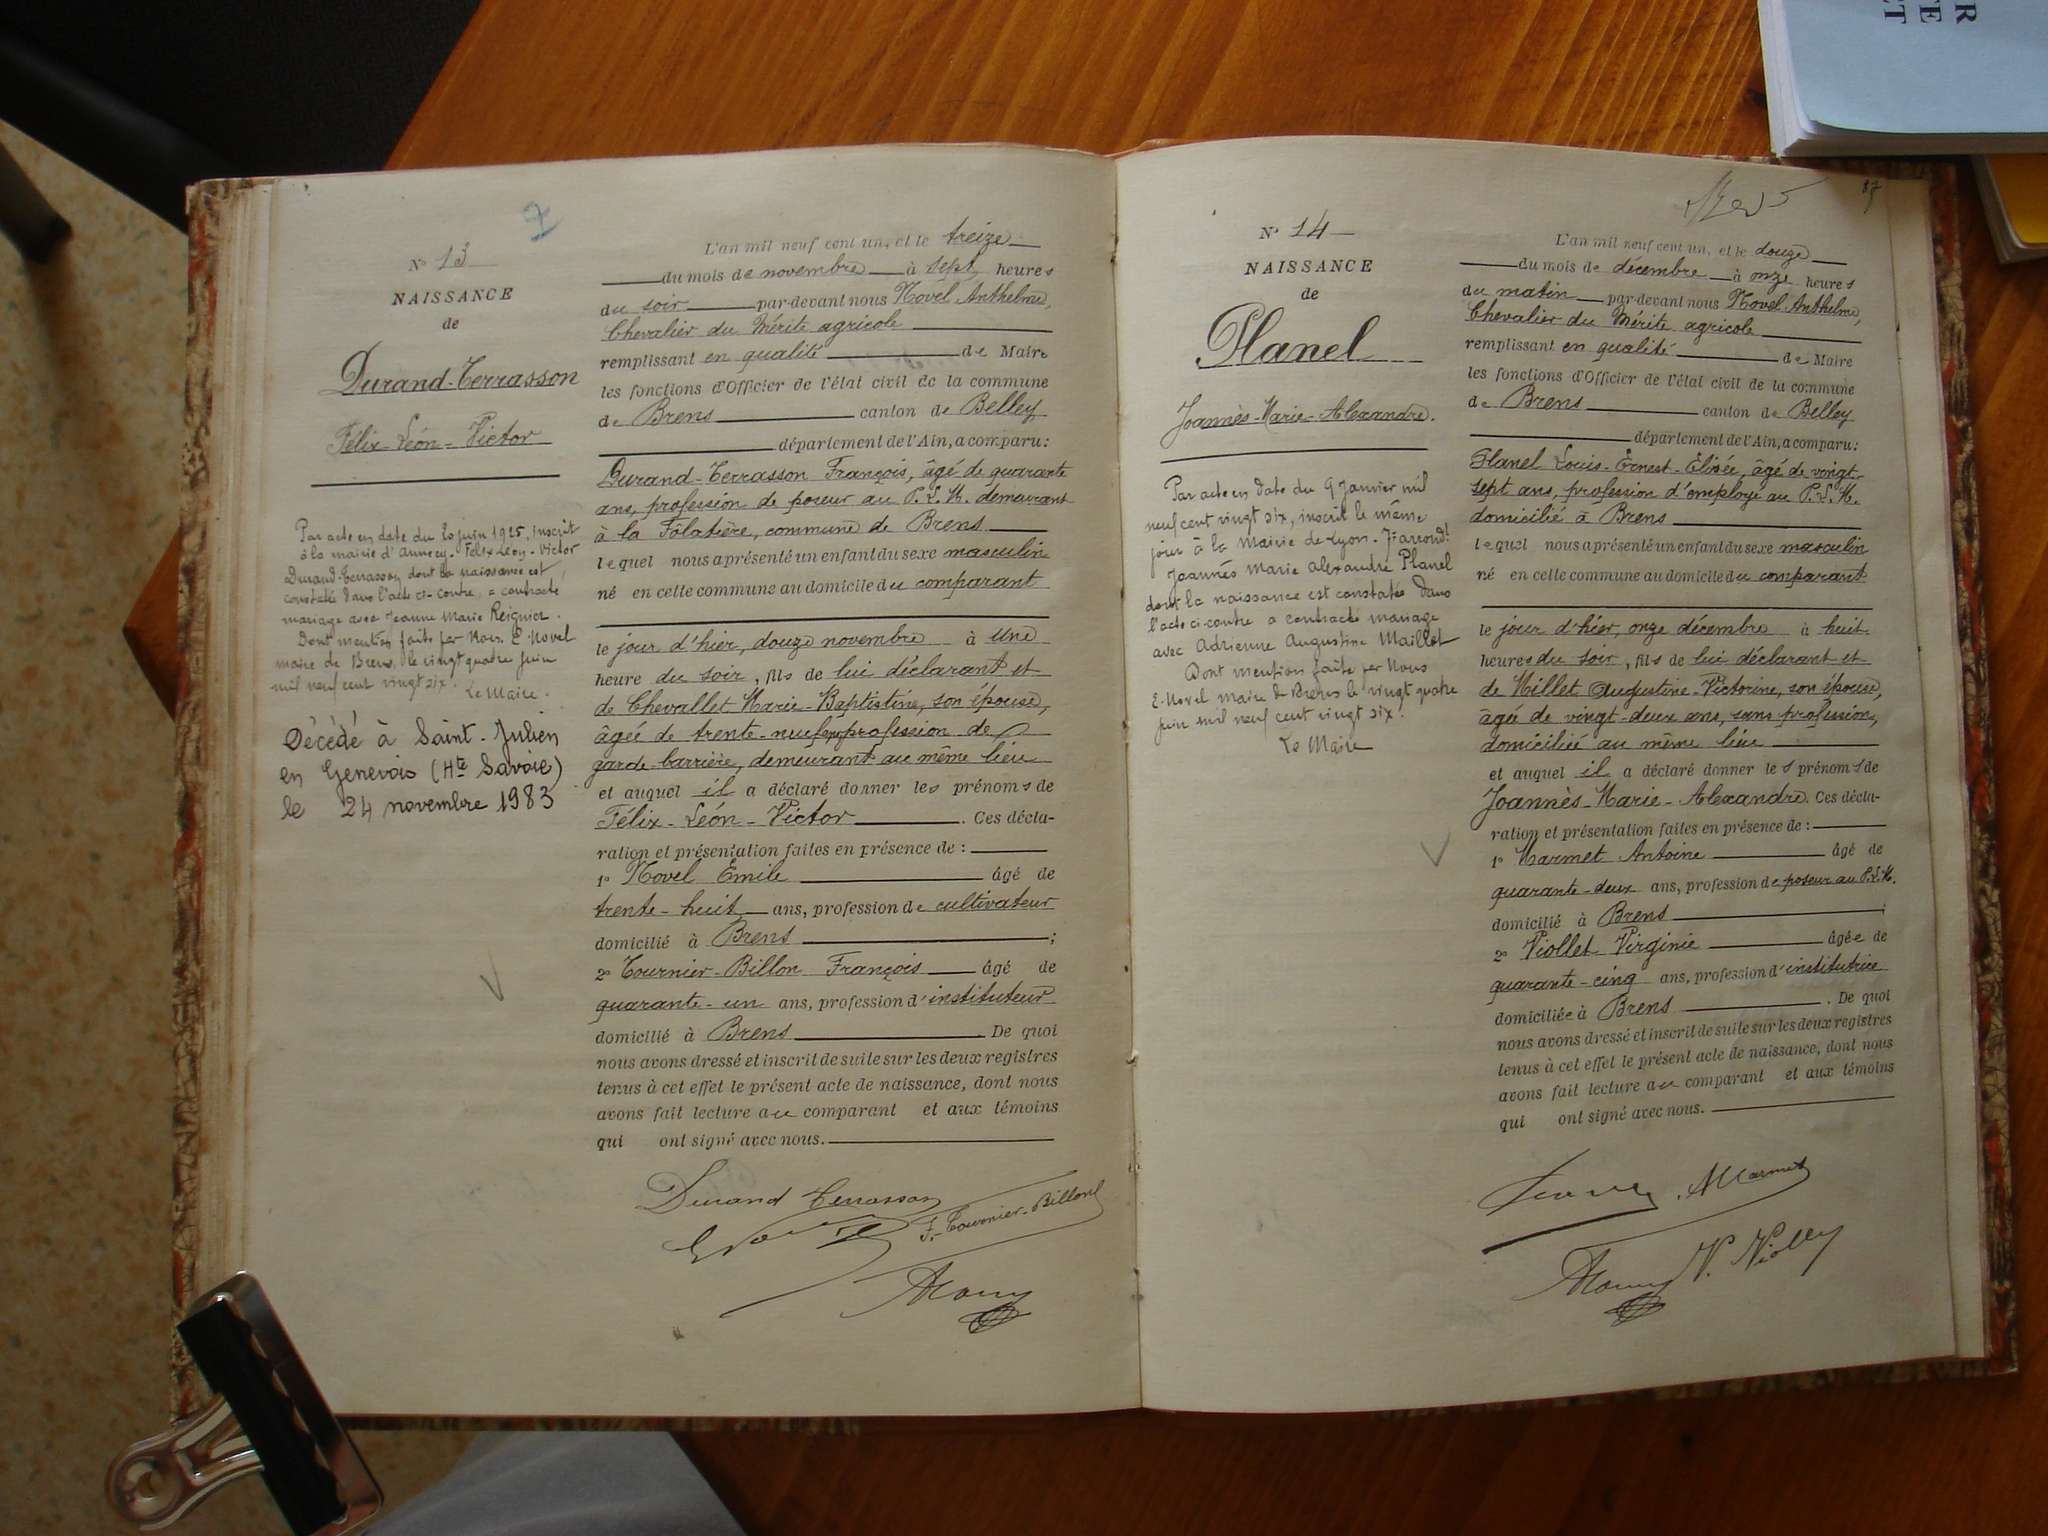 7
N° 13
NAISSANCE
de
Durand-Terrasson
Félix-Léon-Victor
Par acte en date du 20 juin 1925, inscrit
à la mairie d'Annecy. Félix Léon-Victor
Durand-Terrasson dont la naissance est
constatée dans l'acte ci-contre, a contracté
mariage avec Jeanne Marie Reignier.
Dont mention faite par Nous. E. Novel
maire de Brens, le vingt quatre juin
mil neuf cent vingt six.
Le Maire.
Décédé à Saint-Julien
en Genevois (Hte Savoie)
le 24 novembre 1983
L'an mil neuf cent un, et le treize
du mois de novembre à sept heures
du soir par-devant nous Novel Anthelme,
Chevalier du Mérite agricole
remplissant en qualité de Maire
les fonctions d'Officier de l'état civil de la commune
de Brens canton de Belley
département de l'Ain, a comparu:
Durand-Terrasson François, âgé de quarante
ans, profession de poseur au P.L.M. demeurant
à la Fôlatière, commune de Brens
lequel nous a présenté un enfant du sexe masculin
né en cette commune au domicile du comparant
le jour d'hier, douze novembre à une
heure du soir, fils de lui déclarant et
de Chevallet Marie-Baptistine, son épouse,
âgée de trente-neuf ans profession de
garde-barrière, demeurant au même lieu
et auquel il a déclaré donner les prénoms de
Félix-Léon-Victor. Ces décla-
ration et présentation faites en présence de:
1° Novel Emile âgé de
trente-huit ans, profession de cultivateur
domicilié à Brens;
2° Tournier-Billon François âgé de
quarante-un ans, profession d'instituteur
domicilié à Brens De quoi
nous avons dressé et inscrit de suite sur les deux registres
tenus à cet effet le présent acte de naissance, dont nous
avons fait lecture au comparant et aux témoins
qui ont signé avec nous.
Durand Terrasson
F. Tournier-Billon
87
N° 14
NAISSANCE
de
Planel
Joannès-Marie-Alexandre.
Par acte en date du 9 Janvier mil
neuf cent vingt six, inscrit le même
jour à la Mairie de Lyon-
Joannés Marie Alexandre Planel
dont la naissance est constatée dans
l'acte ci-contre a contracté mariage
avec Adrienne Augustine Maillet
Dont mention faite par Nous
E. Novel maire de Brens le vingt quatre
juin mil neuf cent vingt six.
Le Maire
L'an mil neuf cent un, et le douze
du mois de décembre à onze heures
du matin par-devant nous Novel Anthelme,
Chevalier du Mérite agricole
remplissant en qualité de Maire
les fonctions d'Officier de l'état civil de la commune
de Brens canton de Belley
département de l'Ain, a comparu:
Planel Louis-Ernest-Elisée, âgé de vingt-
sept ans, profession d'employé au P.L.M.
domicilié à Brens
lequel nous a présenté un enfant du sexe masculin
né en cette commune au domicile du comparant
le jour d'hier, onze décembre à huit
heures du soir, fils de lui déclarant et
de Millet Augustine-Victorine, son épouse,
âgée de vingt-deux ans, sans profession,
domiciliée au même lieu
et auquel il a déclaré donner les prénoms de
Joannès-Marie-Alexandre. Ces décla-
ration et présentation faites en présence de:
1° Marmet Antoine âgé de
quarante-deux ans, profession de poseur au P.L.M.
domicilié à Brens;
2° Viollet Virginie âgée de
quarante-cinq ans, profession d'institutrice
domiciliée à Brens. De quoi
nous avons dressé et inscrit de suite sur les deux registres
tenus à cet effet le présent acte de naissance, dont nous
avons fait lecture au comparant et aux témoins
qui ont signé avec nous.
A Marmet
V. Viollet